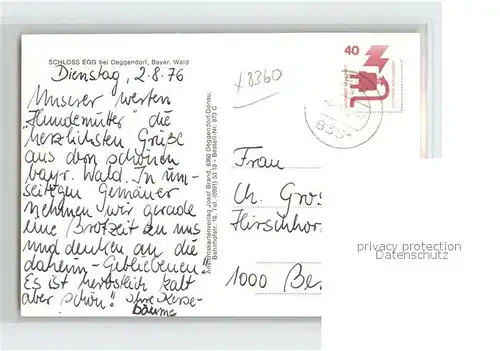 SCHLOSS EGG bei Deggendorf, Bayer. Wald
Dienstag, 2.8.76
Unserer werten
"Hundemutter" die
herzlichsten Grüße
aus dem schönen
bayr. Wald. In um-
seitigen Gemäuer
nehmen wir gerade
eine Brotzeit an uns
und denken an die
daheim-Gebliebenen!
Es ist herbstlich kalt
aber schön!
bäume
Ansichtskartenverlag Josef Brand, 8360 Deggendorf/Donau,
Bahnhofstr. 16, Tel. (0991) 53 10 - Bestell-Nr. 873 C
x 8360
40
835
Frau
Ch. Gros
Hirschhor
1000 Be
privacy protection
Datenschutz